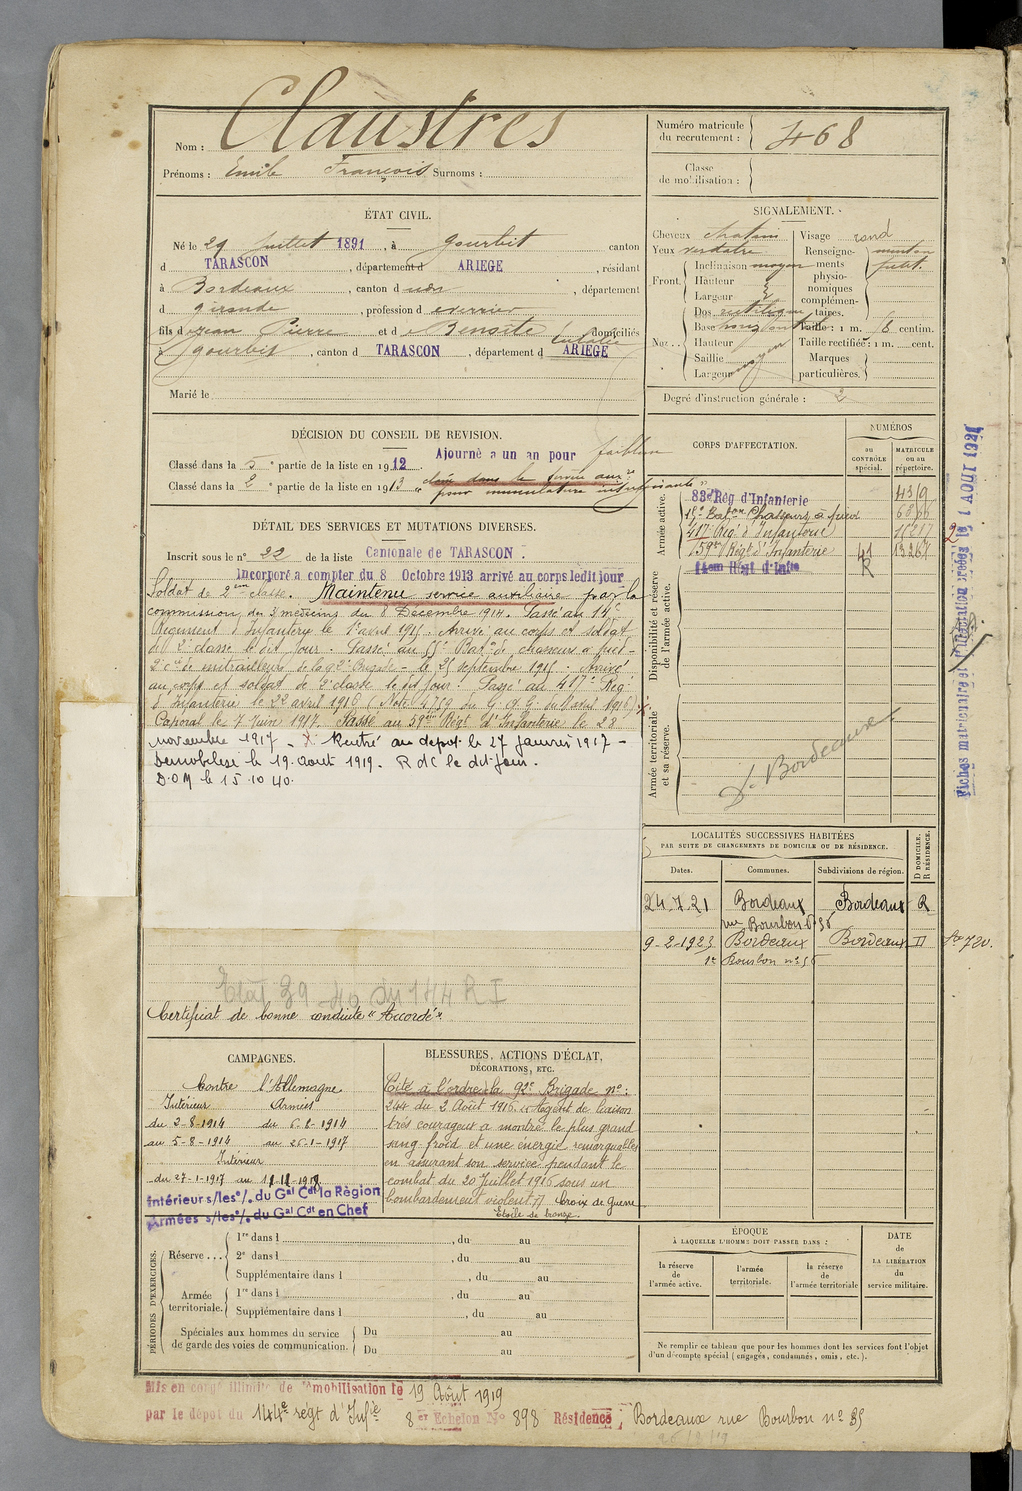 Nom : Claustres
Prénoms : Emile François Surnoms :
Numéro matricule du recrutement : 468
Classe de mobilisation :
ÉTAT CIVIL.
Né le 29 Juillet 1891, à Gourbit canton
d TARASCON, département d ARIEGE, résidant
à Bordeaux, canton d udn, département
d Gironde, profession d
fils d Jean Pierre et d Benoite Eulalie domiciliés
à Gourbit, canton d TARASCON, département d ARIEGE
Marié le
SIGNALEMENT.
Cheveux chatain
Yeux verdatre
Front. Inclinaison moyen
Hauteur
Largeur
Nez. Dos rectiligne
Base
Hauteur
Saillie moyen
Largeur
Visage rond
Renseignements physionomiques complémentaires. menton petit.
Taille : 1 m. 68 centim.
Taille rectifiée : 1 m. cent.
Marques particulières.
Degré d'instruction générale : 2
DÉCISION DU CONSEIL DE REVISION.
Classé dans la 5e partie de la liste en 1912. Ajourné a un an pour faiblesse
Classé dans la 2e partie de la liste en 1913 "classé dans le service auxre
pour musculature insuffisante"
DÉTAIL DES SERVICES ET MUTATIONS DIVERSES.
Inscrit sous le n° 22 de la liste Cantonale de TARASCON.
Incorporé a compter du 8 Octobre 1913 arrivé au corps ledit jour
Soldat de 2eme classe. Maintenu service auxiliaire par la
commission des 3 médecins du 8 Décembre 1914. Passé au 14e
Régiment d'Infanterie le 1er avril 1915. Arrivé au corps et soldat
de 2e classe le dit jour. Passé au Baton de chasseurs à pied -
2e cie de mitrailleurs de la 92e Brigade - le 25 septembre 1915. Arrivé
au corps et soldat de 2e classe le dit jour. Passé au 417e Régt
d'Infanterie le 22 avril 1916 (Note 4759 du G.Q.G. du avril 1916)
Caporal le 7 Juin 1917. Passé au 59eme Régt d'Infanterie le 22
novembre 1917 - X Rentré au dépot le 27 janvier 1917 -
Démobilisé le 19 aout 1919. R d C le dit jour.
D.O.M le 15.10.40.
Etat 39-40 du 144 R I
Certificat de bonne conduite "Accordé"
CORPS D'AFFECTATION.
NUMÉROS
au CONTRÔLE spécial.
MATRICULE ou au répertoire.
Armée active.
83e Rég d'Infanterie
Baton Chasseurs à pied
417e Régt d'Infanterie
159e Régt d'Infanterie
14em Régt d'Infie
Disponibilité et réserve de l'armée active.
Armée territoriale et sa réserve.
Dt Bordeaux
Fiches matriculaire et d'identité créées le 1 AOUT 1921
LOCALITÉS SUCCESSIVES HABITÉES
PAR SUITE DE CHANGEMENTS DE DOMICILE OU DE RÉSIDENCE.
Dates. Communes. Subdivisions de région. D DOMICILE. R RÉSIDENCE.
24.7.21 Bordeaux Bordeaux R
rue Bourbon
9-2-1923 Bordeaux Bordeaux D
re Bourbon n°
CAMPAGNES.
Contre l'Allemagne
Intérieur Armées
du 2-8-1914 du 6-8-1914
au 5-8-1914 au 26-1-1917
Intérieur
du 27-1-1917 au
Intérieur s/les o/. du Gal Cdt la Région
Armées s/les o/. du Gal Cdt en Chef
BLESSURES, ACTIONS D'ÉCLAT,
DÉCORATIONS, ETC.
Cité à l'ordre de la 92e Brigade n° :
244 du 2 Août 1916. "Agent de liaison
très courageux a montré le plus grand
sang froid et une énergie remarquables
en assurant son service pendant le
combat du 20 Juillet 1916 sous un
bombardement violent." Croix de Guerre
Etoile de bronze.
PÉRIODES D'EXERCICES.
Réserve ... 1re dans l , du au
2e dans l , du au
Supplémentaire dans l , du au
Armée territoriale. 1re dans l , du au
Supplémentaire dans l , du au
Spéciales aux hommes du service de garde des voies de communication. Du au
Du au
ÉPOQUE
À LAQUELLE L'HOMME DOIT PASSER DANS :
la réserve de l'armée active. l'armée territoriale. la réserve de l'armée territoriale
DATE de LA LIBÉRATION du service militaire.
Ne remplir ce tableau que pour les hommes dont les services font l'objet
d'un décompte spécial (engagés, condamnés, omis, etc.).
Mis en congé illimité de démobilisation le 19 Août 1919
par le dépot du 144e régt d'Infie 8er Echelon No 898 Résidence, Bordeaux rue Bourbon n°